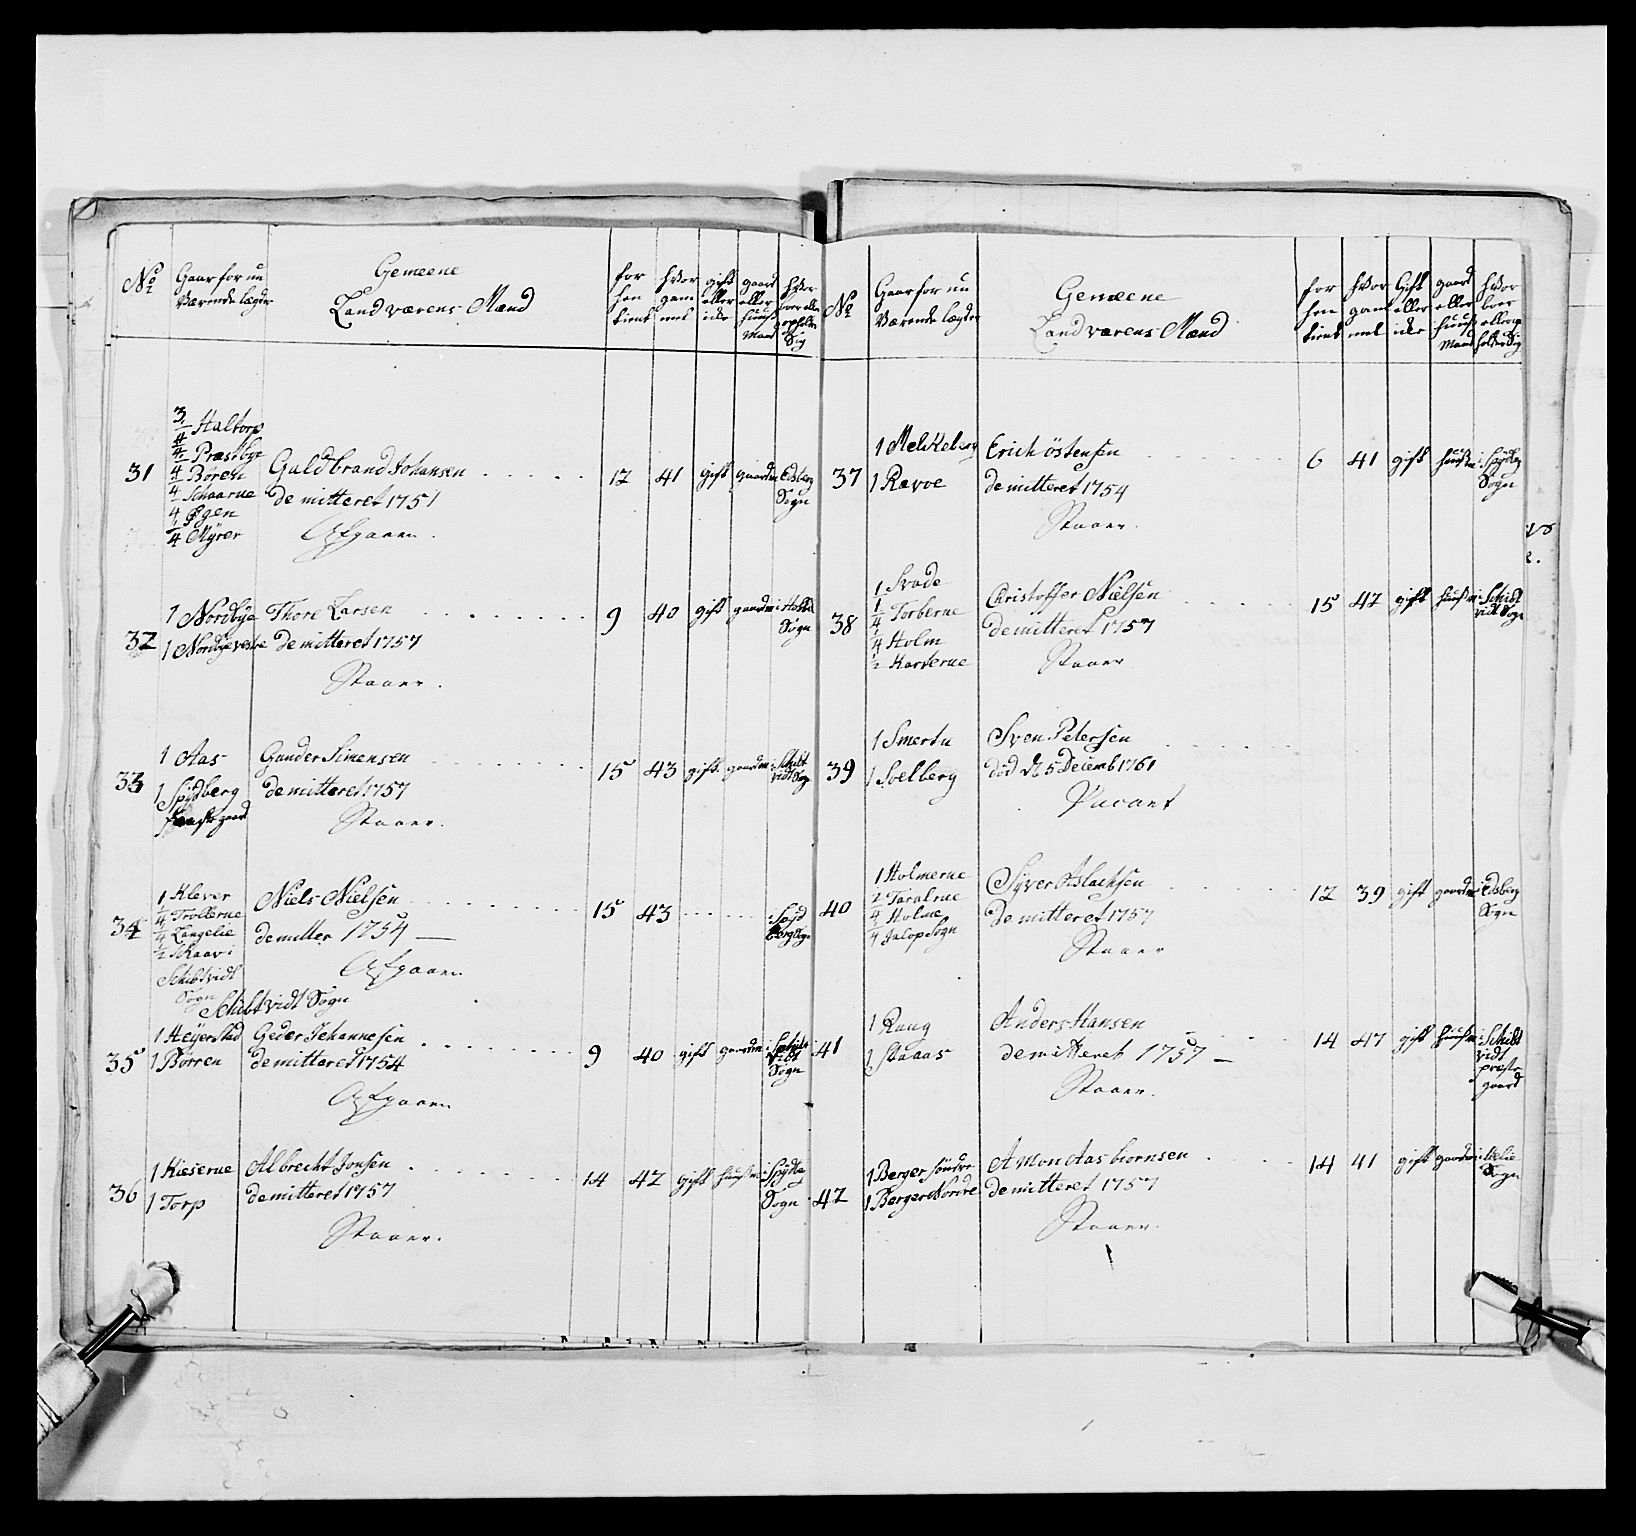 No
Gaar for nu
Værende lægder
Gemeene
Landværens Mænd
for
hen
tient
hvor
gam
mel
gift
eller
ikke
gaard
eller
huus
Mand
hvor
boer eller
opholder
Sig
31
3/4 Haltorp
Præstbye
1/4 Børen
1/4 Schaarne
1/4 Øgen
1/4 Myrer
Guldbrand Johansen
demitteret 1751
Afgaaen.
12 41 gift gaardm Edsberg
Sogn
32
1 Nordbye
1 Nordbye vestre
Thore Larsen
demitteret 1757
Staaer.
9 40 gift gaardm
Sogn
33
1 Aas
1 Spydberg
Præstegaard
Gunder Simensen
demitteret 1757
Staaer.
15 43 gift gaardm Schibt
vidt Sogn
34
1 Klever
1/4 Trollerne
1/4 Langelie
1/2 Skaar i
Schibtvidt
Sogn
Niels Nielsen
demitter 1754
Afgaaen
15 43 Spyd
berg Sogn
Schibtvidt Sogn
35
1 Heyerstad
1 Børren
Geder Johannesen
demitteret 1754
Afgaaen
9 40 gift gaardm Schibt
vidt
Sogn
36
1 Kieserne
1 Torp
Albrecht Jonsen
demitteret 1757
Staaer.
14 42 gift huusm Spydbg
Sogn
No
Gaar for nu
Værende lægder
Gemeene
Landværens Mænd
for
hen
tient
hvor
gam
mel
Gift
eller
ikke
gaard
eller
huus
Mand
hvor
boer
eller op
holder Sig
37
1 Melkeberg
1 Ravoe
Erich Östensen
demitteret 1754
Staaer.
6 41 gift huusm Spydberg
Sogn
38
1 Svade
1/4 Torberne
1/4 Holm
1/2 Karterne
Christoffer Nielsen
demitteret 1757
Staaer
15 42 gift huusm i Schibt
vidt Sogn
39
1 Smertu
1 Soelberg
Sven Petersen
død d 5 Decemb 1761
Vacant
40
1 Holmerne
1/2
1/4 Holme
1/4
Syver Aslachsen
demitteret 1757
Staaer
12 39 gift gaardm Edsberg
Sogn
41
1 Raug
1 Staaas
Anders Hansen
demitteret 1757
Staaer.
14 47 gift huusm i Schibt
vidt
præste
gaard
42
1 Berger søndre
1 Berger Nordre
Amon Aasbiornsen
demitteret 1757
Staaer.
14 41 gift gaardm
Sogn